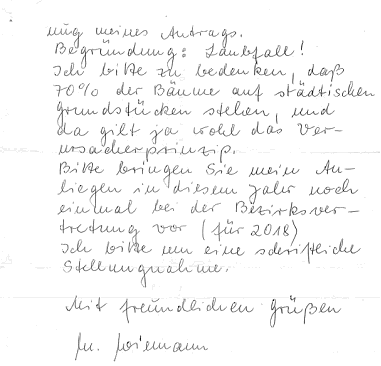 nung meines Antrags.
Begründung: Laubfall!
Ich bitte zu bedenken, daß
70% der Bäume auf städtischen
Grundstücken stehen, und
da gilt ja wohl das Ver-
ursacherprinzip.
Bitte bringen Sie mein An-
liegen in diesem Jahr noch
einmal bei der Bezirksver-
tretung vor (für 2018)
Ich bitte um eine schriftliche
Stellungnahme.
Mit freundlichen Grüßen